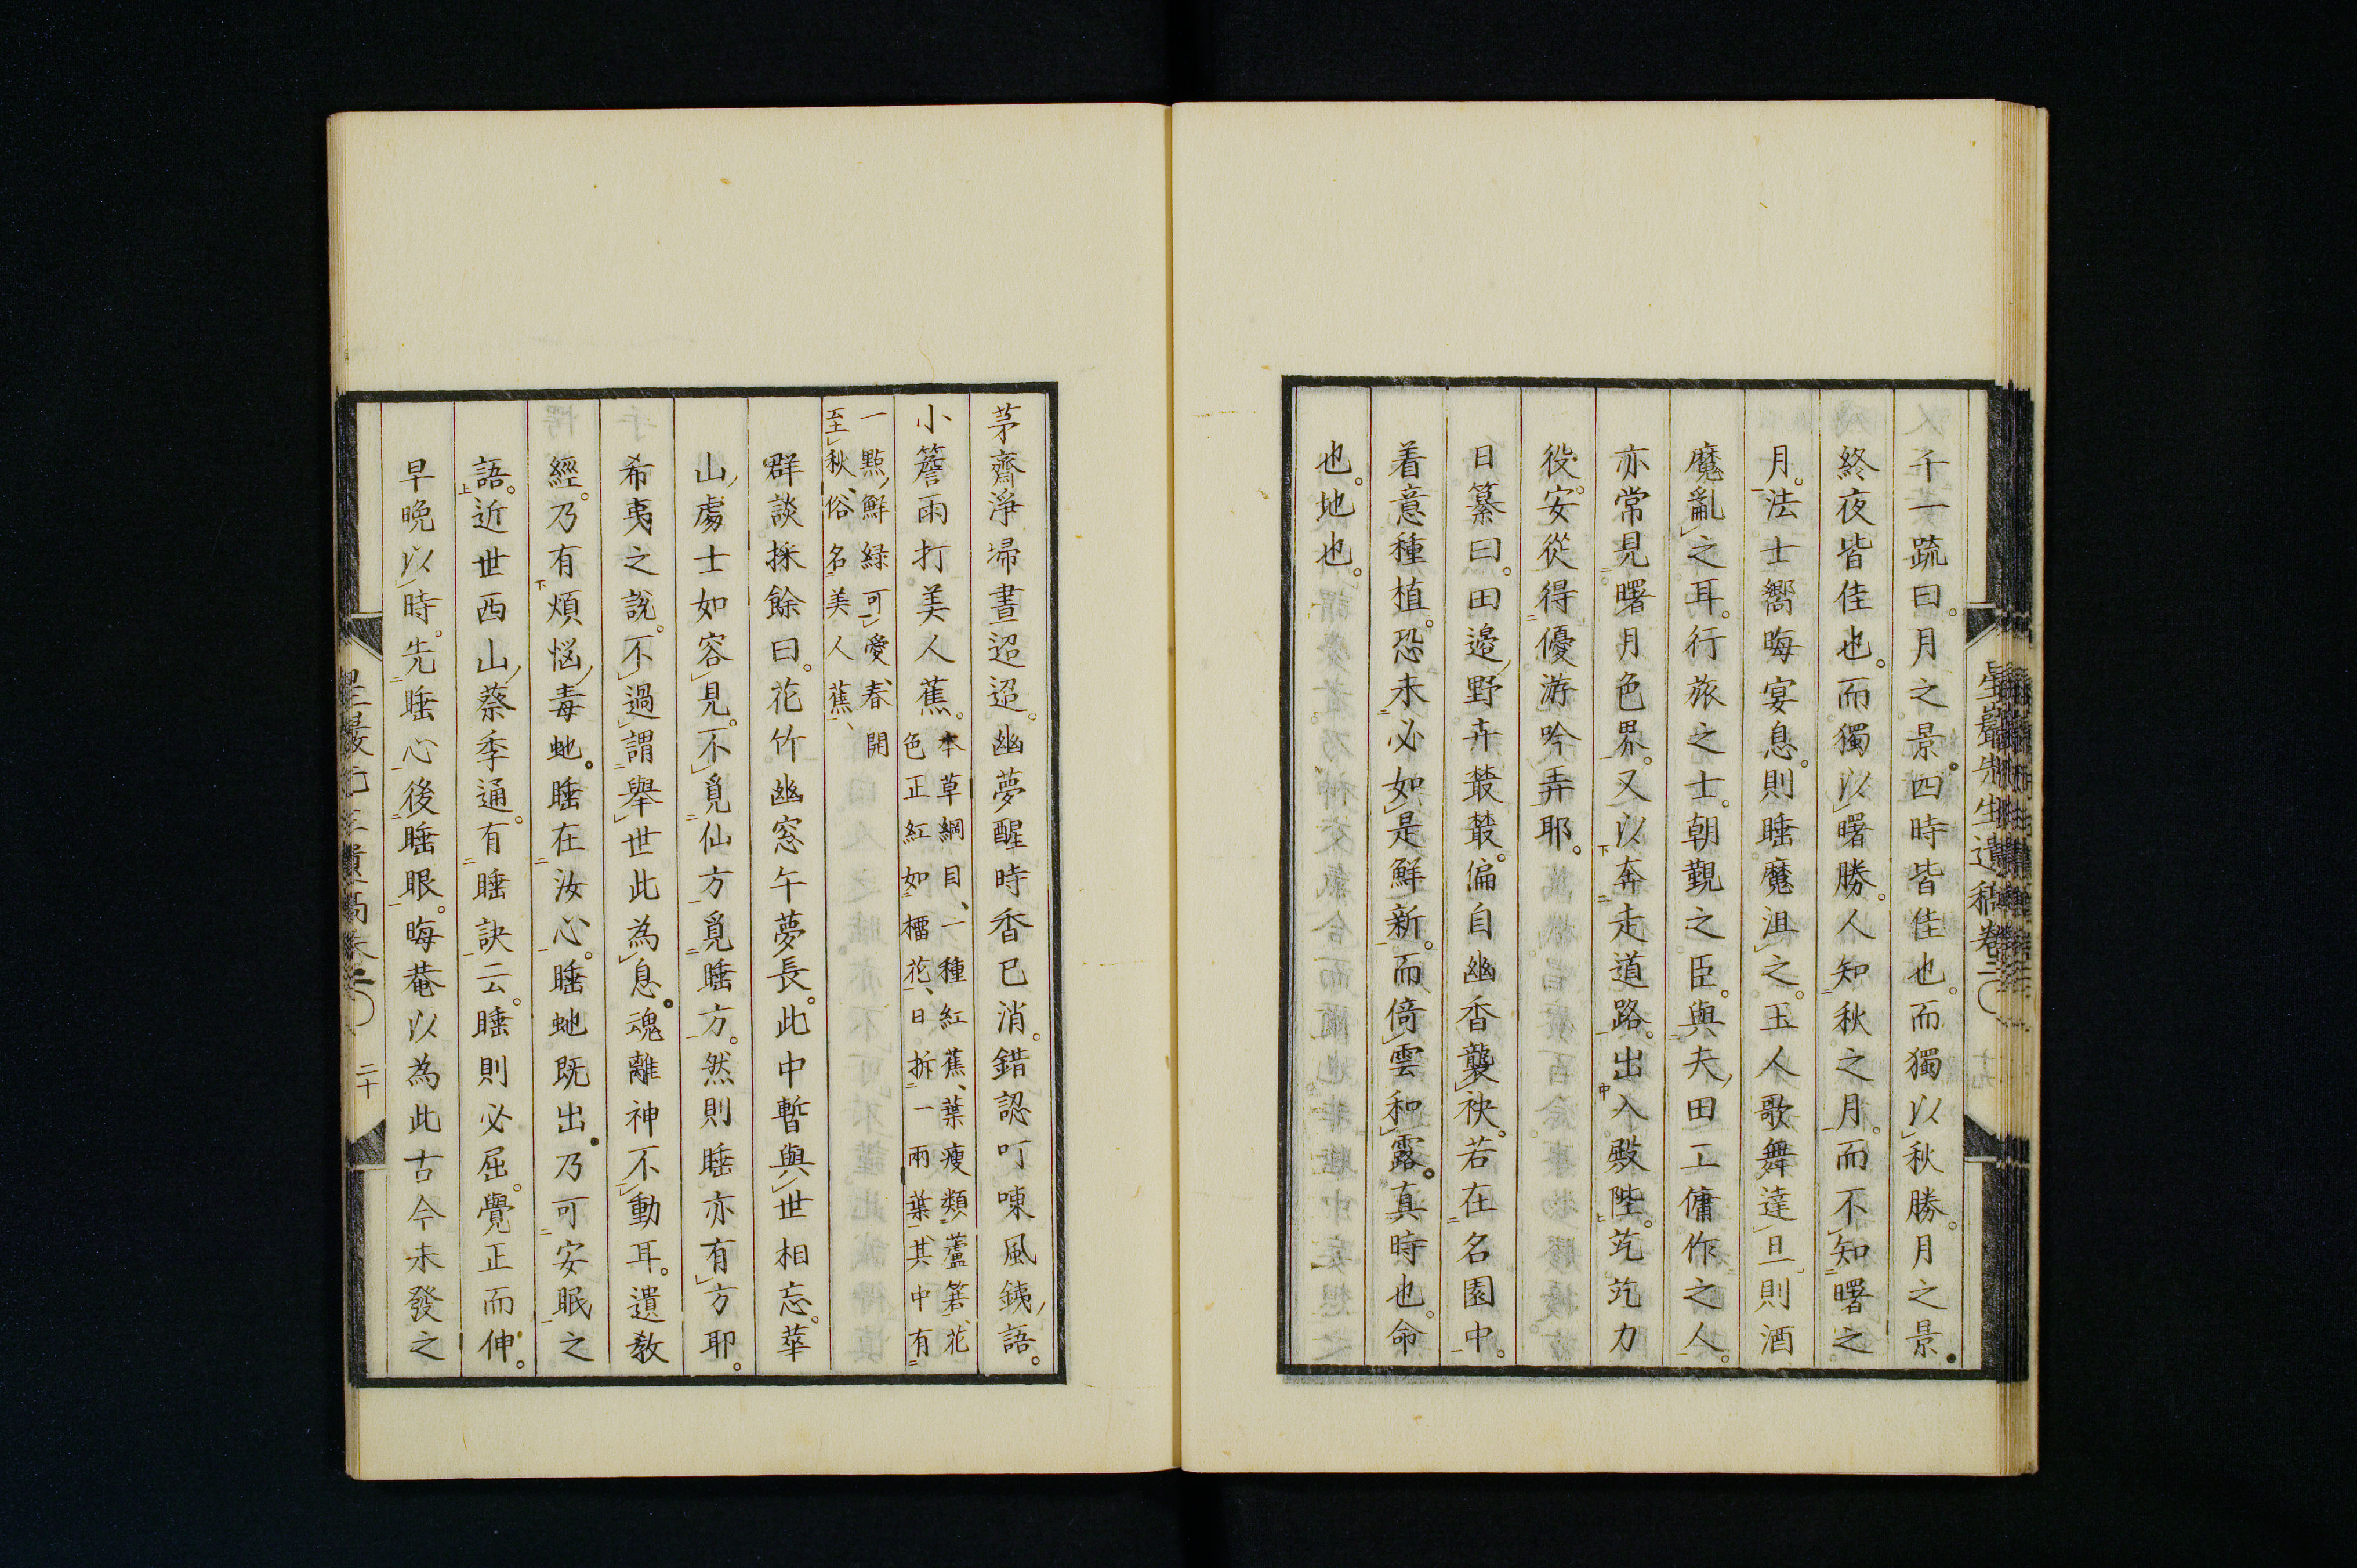 千一疏曰。月之景。四時皆佳也。而獨以秋勝。月之景。
終夜皆佳也。而獨以曙勝。人知秋之月。而不知曙之
月。法士嚮晦宴息。則睡魔沮之。玉人歌舞達旦。則酒
魔亂之耳。行旅之士。朝覲之臣。與夫田工傭作之人。
亦常見曙月色界。又以奔走道路。出入殿陛。矻矻力
役。安從得優游吟弄耶。
日纂曰。田邉野卉蕞蕞。偏自幽香襲袂。若在名園中。
着意種植。恐未必如是鮮新。而倚雲和露。真時也。命
也。地也。
星巖先生遺稿 卷二 十九
茅齋淨埽晝迢迢。幽夢醒時香已消。錯認叮㖦風銕語。
小簷雨打美人蕉。
本草綱目、一種紅蕉、葉瘦類蘆箬、花
色正紅如榴花、日拆一兩葉、其中有
一點鮮緑可愛、春開
至秋、俗名美人蕉、
群談採餘曰。花竹幽窓午夢長。此中暫與世相忘。華
山處士如容見。不覓仙方覓睡方。然則睡亦有方耶。
希夷之說。不過謂舉世此為息。魂離神不動耳。遺教
經。乃有煩惱毒虵。睡在汝心。睡虵既出。乃可安眠之
語。近世西山蔡季通。有睡訣云。睡則必屈。覺正而伸。
早晚以時。先睡心後睡眼。晦菴以為此古今未發之
二十